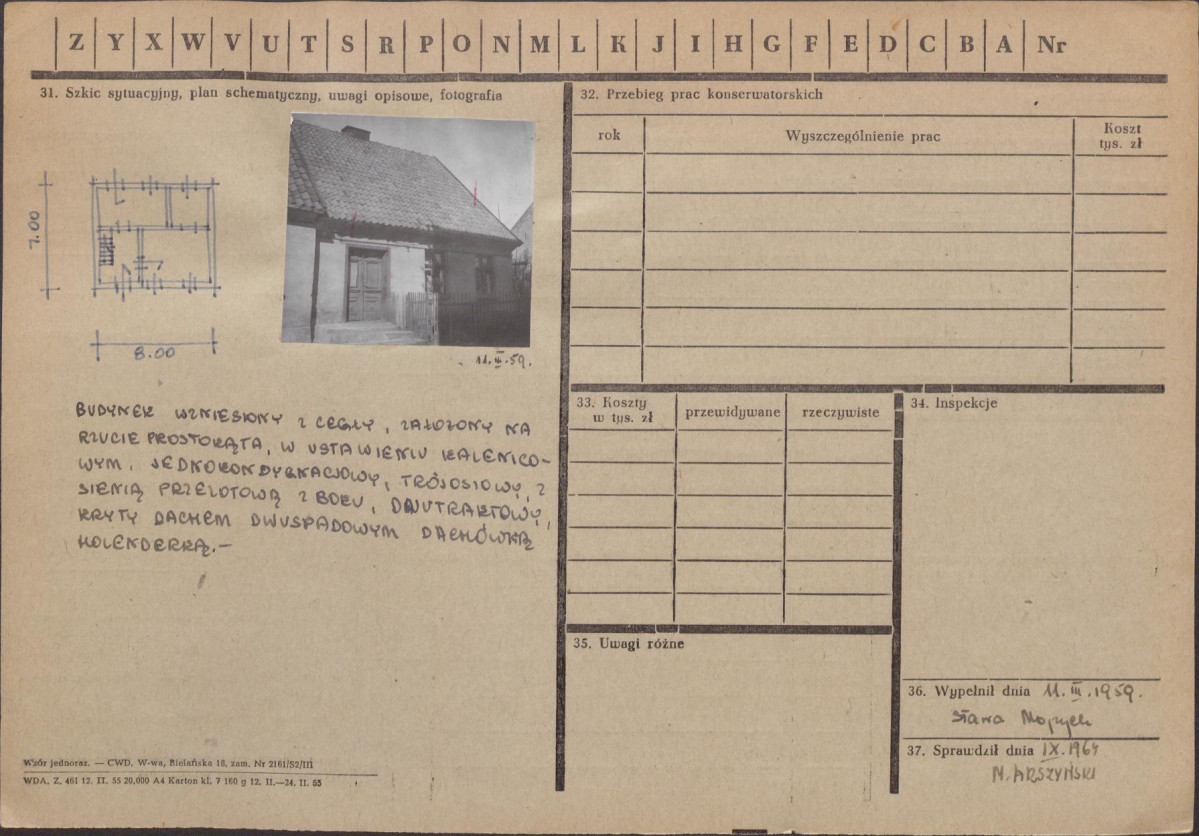 Z Y X W V U T S R P O N M L K J I H G F E D C B A Nr
31. Szkic sytuacyjny, plan schematyczny, uwagi opisowe, fotografia
7.00
8.00
11.III.59.
BUDYNEK WZNIESIONY Z CEGŁY, ZAŁOŻONY NA
RZUCIE PROSTOKĄTA, W USTAWIENIU KALENICO-
WYM, JEDNOKONDYGNACJOWY, TRÓJOSIOWY, Z
SIENIĄ PRZELOTOWĄ Z BOKU, DWUTRAKTOWY,
KRYTY DACHEM DWUSPADOWYM DACHÓWKĄ
HOLENDERKĄ.—
Wzór jednoraz. — CWD, W-wa, Bielańska 18, zam. Nr 2161/S2/III
WDA. Z. 461 12. II. 55 20.000 A4 Karton kl. 7 160 g 12. II.—24. II. 55
32. Przebieg prac konserwatorskich
rok Wyszczególnienie prac Koszt
tys. zł
33. Koszty
w tys. zł przewidywane rzeczywiste
34. Inspekcje
35. Uwagi różne
36. Wypełnił dnia 11.III.1959.
Sława
37. Sprawdził dnia IX.1964
M. ARSZYŃSKI